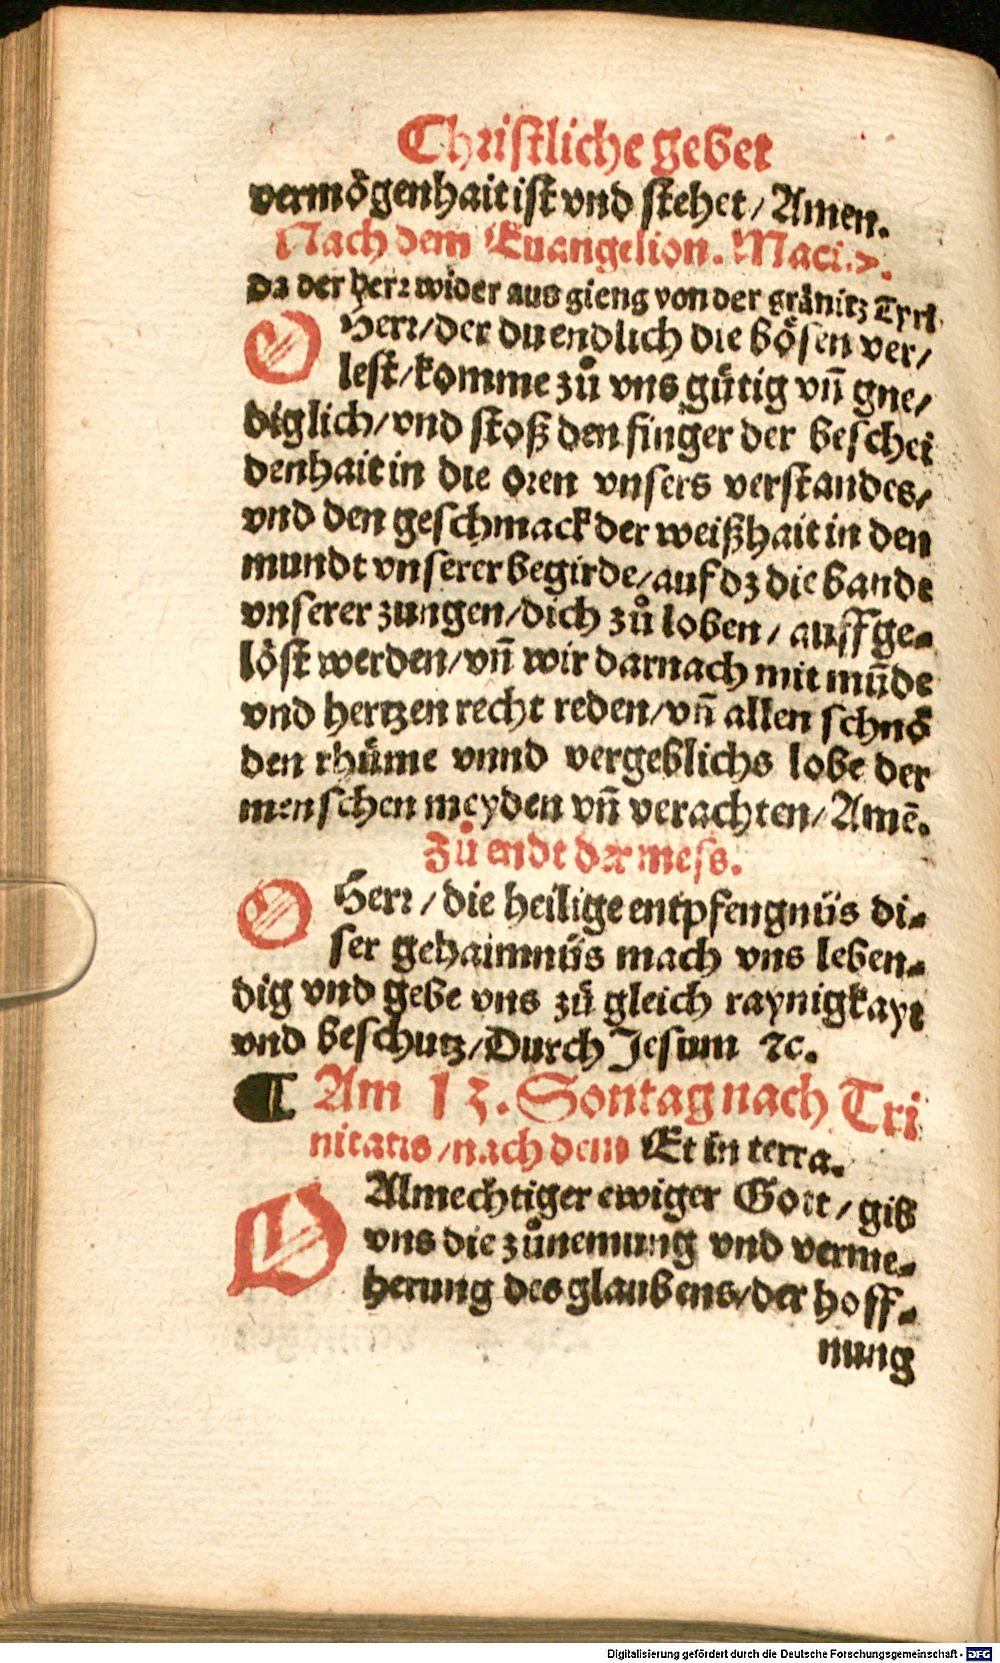 Christliche gebet
vermögenhait ist vnd stehet / Amen.
Nach dem Euangelion. Marci. 7.
Da der herr wider aus gieng von der gränitz Tyri
O Herr / der du endlich die bösen ver /
lest / komme zů vns gütig vñ gne /
diglich / vnd stoß den finger der beschei
denhait in die oren vnsers verstandes /
vnd den geschmack der weißhait in den
mundt vnserer begirde / auf dz die bande
vnserer zungen / dich zů loben / auffge-
löst werden / vñ wir darnach mit mũde
vnd hertzen recht reden / vñ allen schnö
den rhüme vnnd vergeblichs lobe der
menschen meyden vñ verachten / Amē.
Zů endt der mess.
O Herr / die heilige entpfengnüs di-
ser gehaimnüs mach vns leben-
dig vnd gebe vns zů gleich raynigkayt
vnd beschutz / Durch Jesum ꝛc.
¶ Am 13. Sontag nach Tri
nitatis / nach dem Et in terra.
O Almechtiger ewiger Gott / gib
vns die zůnemung vnd verme-
herung des glaubens / der hoff-
nung
Digitalisierung gefördert durch die Deutsche Forschungsgemeinschaft - DFG